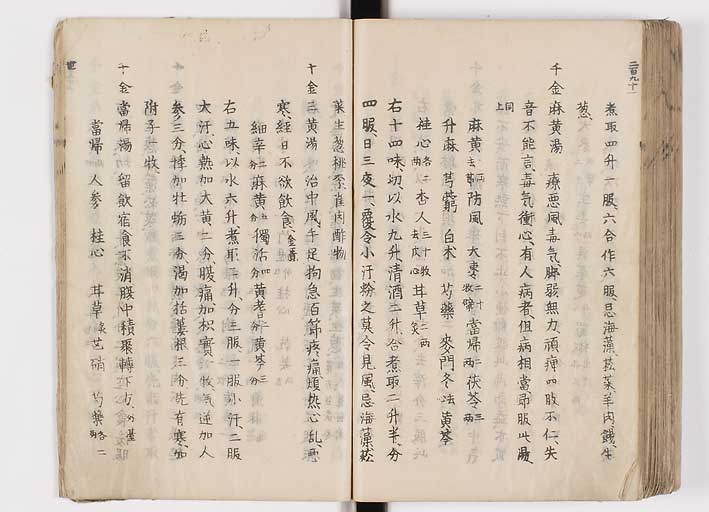 煮取四升一服六合作六服忌海藻菘菜羊肉餳生
葱
千金麻黄湯 療悪風毒気脚弱無力頑痺四肢不仁失
音不能言毒気衝心有人病者但病相当即服此湯
上同
麻黄一両去節 防風 大棗二十枚擘 当帰二両 茯苓三両
升麻 芎藭 白朮 芍薬 麦門冬 黄芩
桂心各二両 杏人三十枚 甘草二両炙
右十四味切以水九升清酒二升合煮取二升半分
四服日三夜一覆令小汗粉之莫令見風忌海藻菘
菜生葱桃李雀肉酢物
千金三黄湯 治中風手足拘急百節疼痛煩熱心乱悪
寒経日不欲飲食
細辛二分 麻黄五分 獨活四分 黄耆二分 黄芩三分
右五味以水六升煮取二升分三服一服小汗二服
大汗心熱加大黄二分腹痛加枳實一枚気逆加人
参三分悸加牡蛎三分渇加括蔞根三分先有寒加
附子一枚
千金當帰湯 留飲宿食不消腹中積聚轉下方
當帰 人参 桂心 甘草炙 芒硝 芍薬各二両